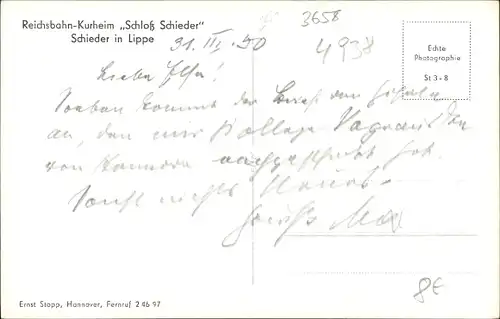 Reichsbahn-Kurheim „Schloß Schieder"
Schieder in Lippe
3658
4938
31. III. 50
Echte
Photographie
St 3 - 8
Liebe Elfe!
Soeben kommt der Brief von
an, den mir Kollege
von nachgeschickt hat.
Sonst nichts Neues.
Gruß Max
8€
Ernst Stopp, Hannover, Fernruf 2 46 97